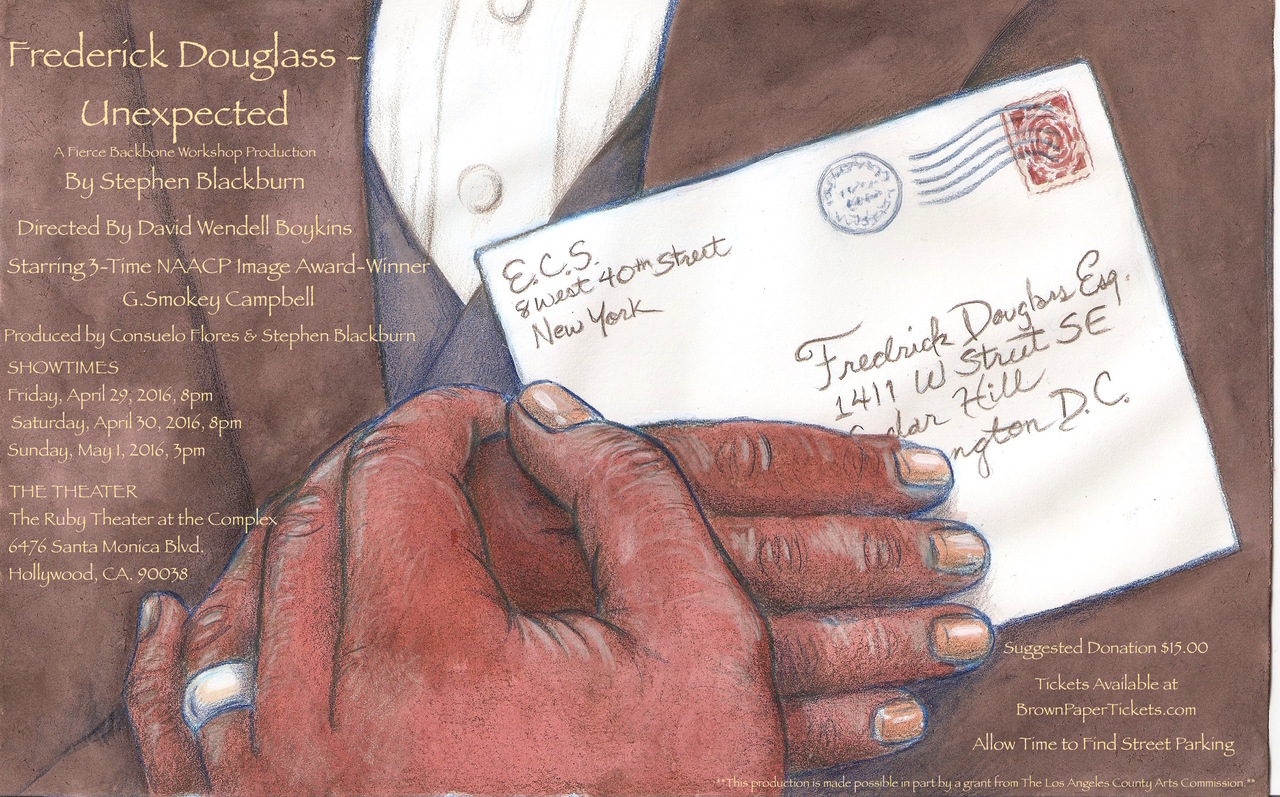 Frederick Douglass -
Unexpected
A Fierce Backbone Workshop Production
By Stephen Blackburn
Directed By David Wendell Boykins
Starring 3-Time NAACP Image Award-Winner
G.Smokey Campbell
Produced by Consuelo Flores & Stephen Blackburn
SHOWTIMES
Friday, April 29, 2016, 8pm
Saturday, April 30, 2016, 8pm
Sunday, May 1, 2016, 3pm
THE THEATER
The Ruby Theater at the Complex
6476 Santa Monica Blvd.
Hollywood, CA. 90038
E.C.S.
8 West 40th Street
New York
Fredrick Douglass Esq.
1411 W Street SE
Cedar Hill
ngton D.C.
Suggested Donation $15.00
Tickets Available at
BrownPaperTickets.com
Allow Time to Find Street Parking
**This production is made possible in part by a grant from The Los Angeles County Arts Commission.**